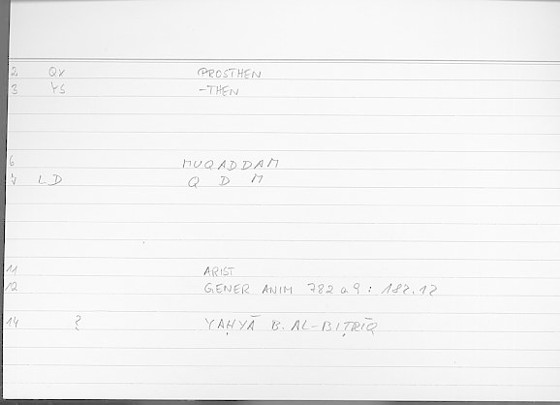 2 QV PROSTHEN
3 YS -THEN
6 MUQADDAM
7 LD Q D M
11 ARIST
12 GENER ANIM 782 a 9 : 182.12
14 ? YAḤYĀ B. AL-BIṬRĪQ